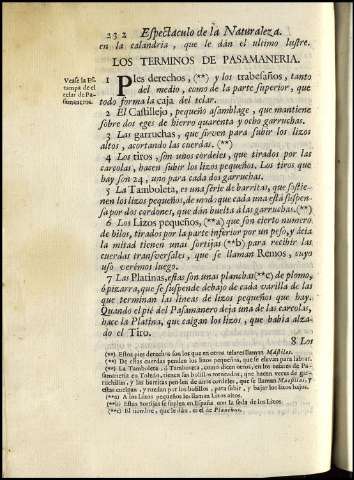 232 Espectaculo de la Naturaleza.
en la calandria, que le dàn el ultimo lustre.
LOS TERMINOS DE PASAMANERIA.
Vease la Estampa
del telar de Pasamaneros.
1 Pies derechos, (**) y los trabesaños, tanto
del medio, como de la parte superior, que
todo forma la caja del telar.
2 El Castillejo, pequeño asamblage, que mantiene
sobre dos eges de hierro quarenta y ocho garruchas.
3 Las garruchas, que sirven para subir los lizos
altos, acortando las cuerdas. (**)
4 Los tiros, son unos cordeles, que tirados por las
carcolas, hacen subir los lizos pequeños. Los tiros que
hay son 24, uno para cada dos garruchas.
5 La Tamboleta, es una serie de barritas, que sostienen
los lizos pequeños, de modo que cada una está suspensa
por dos cordones, que dàn buelta à las garruchas. (**)
6 Los Lizos pequeños, (**a) que son cierto numero
de hilos, tirados por la parte inferior por un peso, y àcia
la mitad tienen unas sortijas (**b) para recibir las
cuerdas transversales, que se llaman Remos, cuyo
uso verémos luego.
7 Las Platinas, estas son unas planchas (**c) de plomo,
ó pizarra, que se suspende debajo de cada varilla de las
que terminan las lineas de lizos pequeños que hay.
Quando el pie del Pasamanero deja una de las carcolas,
hace la Platina, que caigan los lizos, que habia alzado
el Tiro.
8 Los
(**) Estos pies derechos son los que en otros telares llaman Mástiles.
(**) De estas cuerdas penden los lizos pequeños, que se elevan para labrar.
(**) La Tamboleta, ó Tamborela, como dicen otros, en los telares de Pasamanería
en Toledo, tienen las bolillos torneadas, que hacen veces de garruchillas,
y las barritas penden de otros cordeles, que se llaman
estas cuelgan, y ruedan por los bolillos, para subir, y bajar los lizos bajos.
(**a) A los Lizos pequeños les llaman Lizos altos.
(**b) Estas sortijas se suplen en España con la seda de los Lizos.
(**c) El nombre, que le dàn, es el de Planchas.